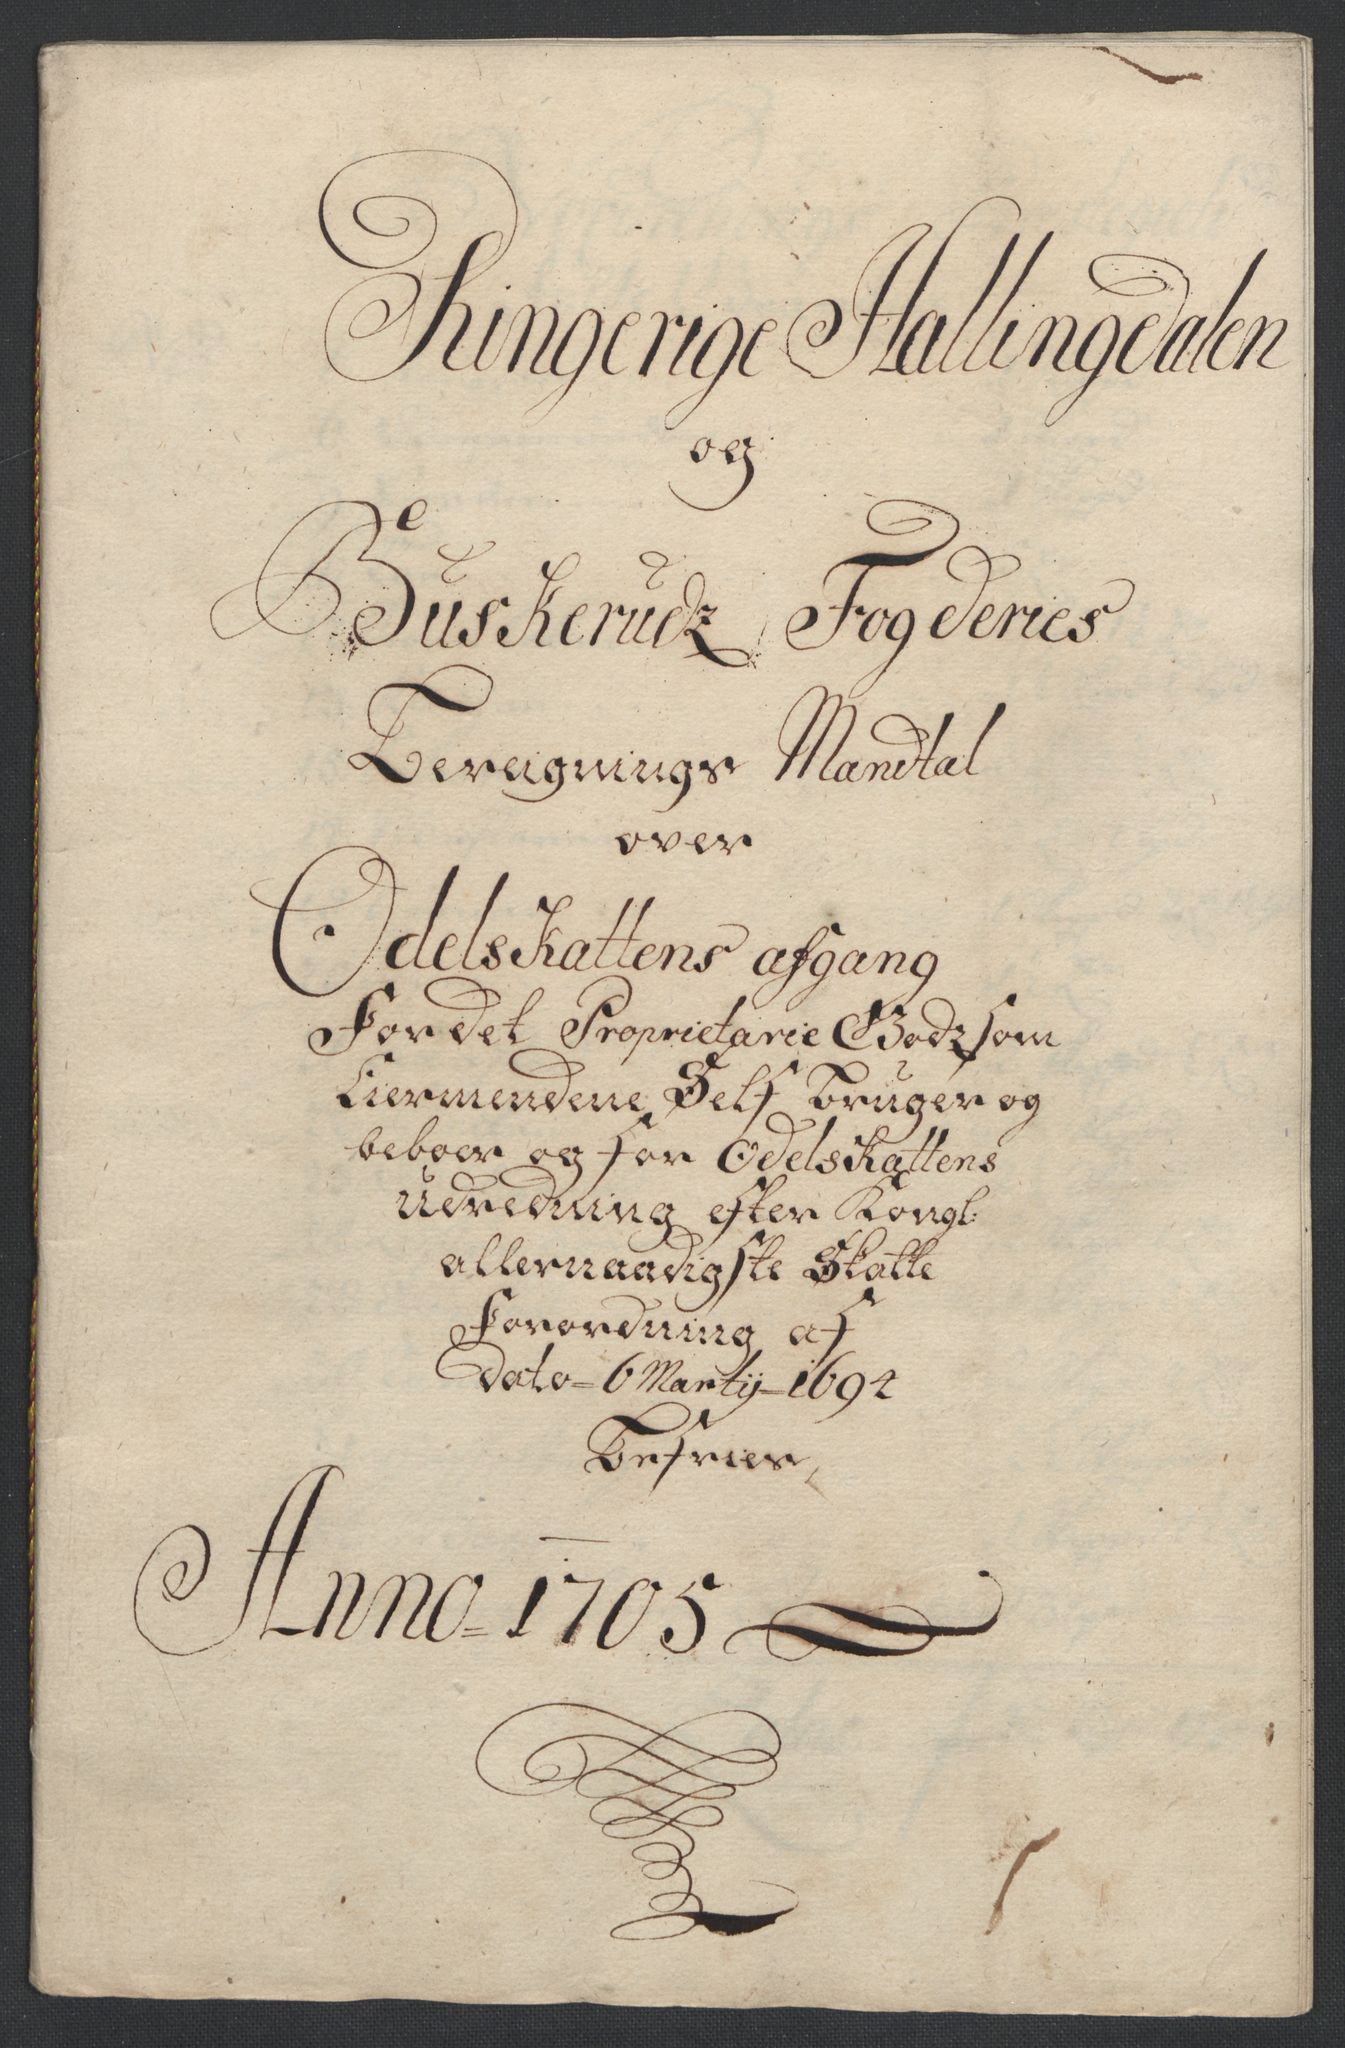 Ringerige Hallingdalen
og
Buskerudz Fogderies
Beregnings Mandtal
over
Odelskattens afgang
For det Proprietarie Godz som
Eiermendene Self bruger og
beboer og for Odelskattens
udredning efter Kongl:
allernaadigste Skatte
Forordning af
dato - 6 Martij - 1694
befries
Anno = 1705